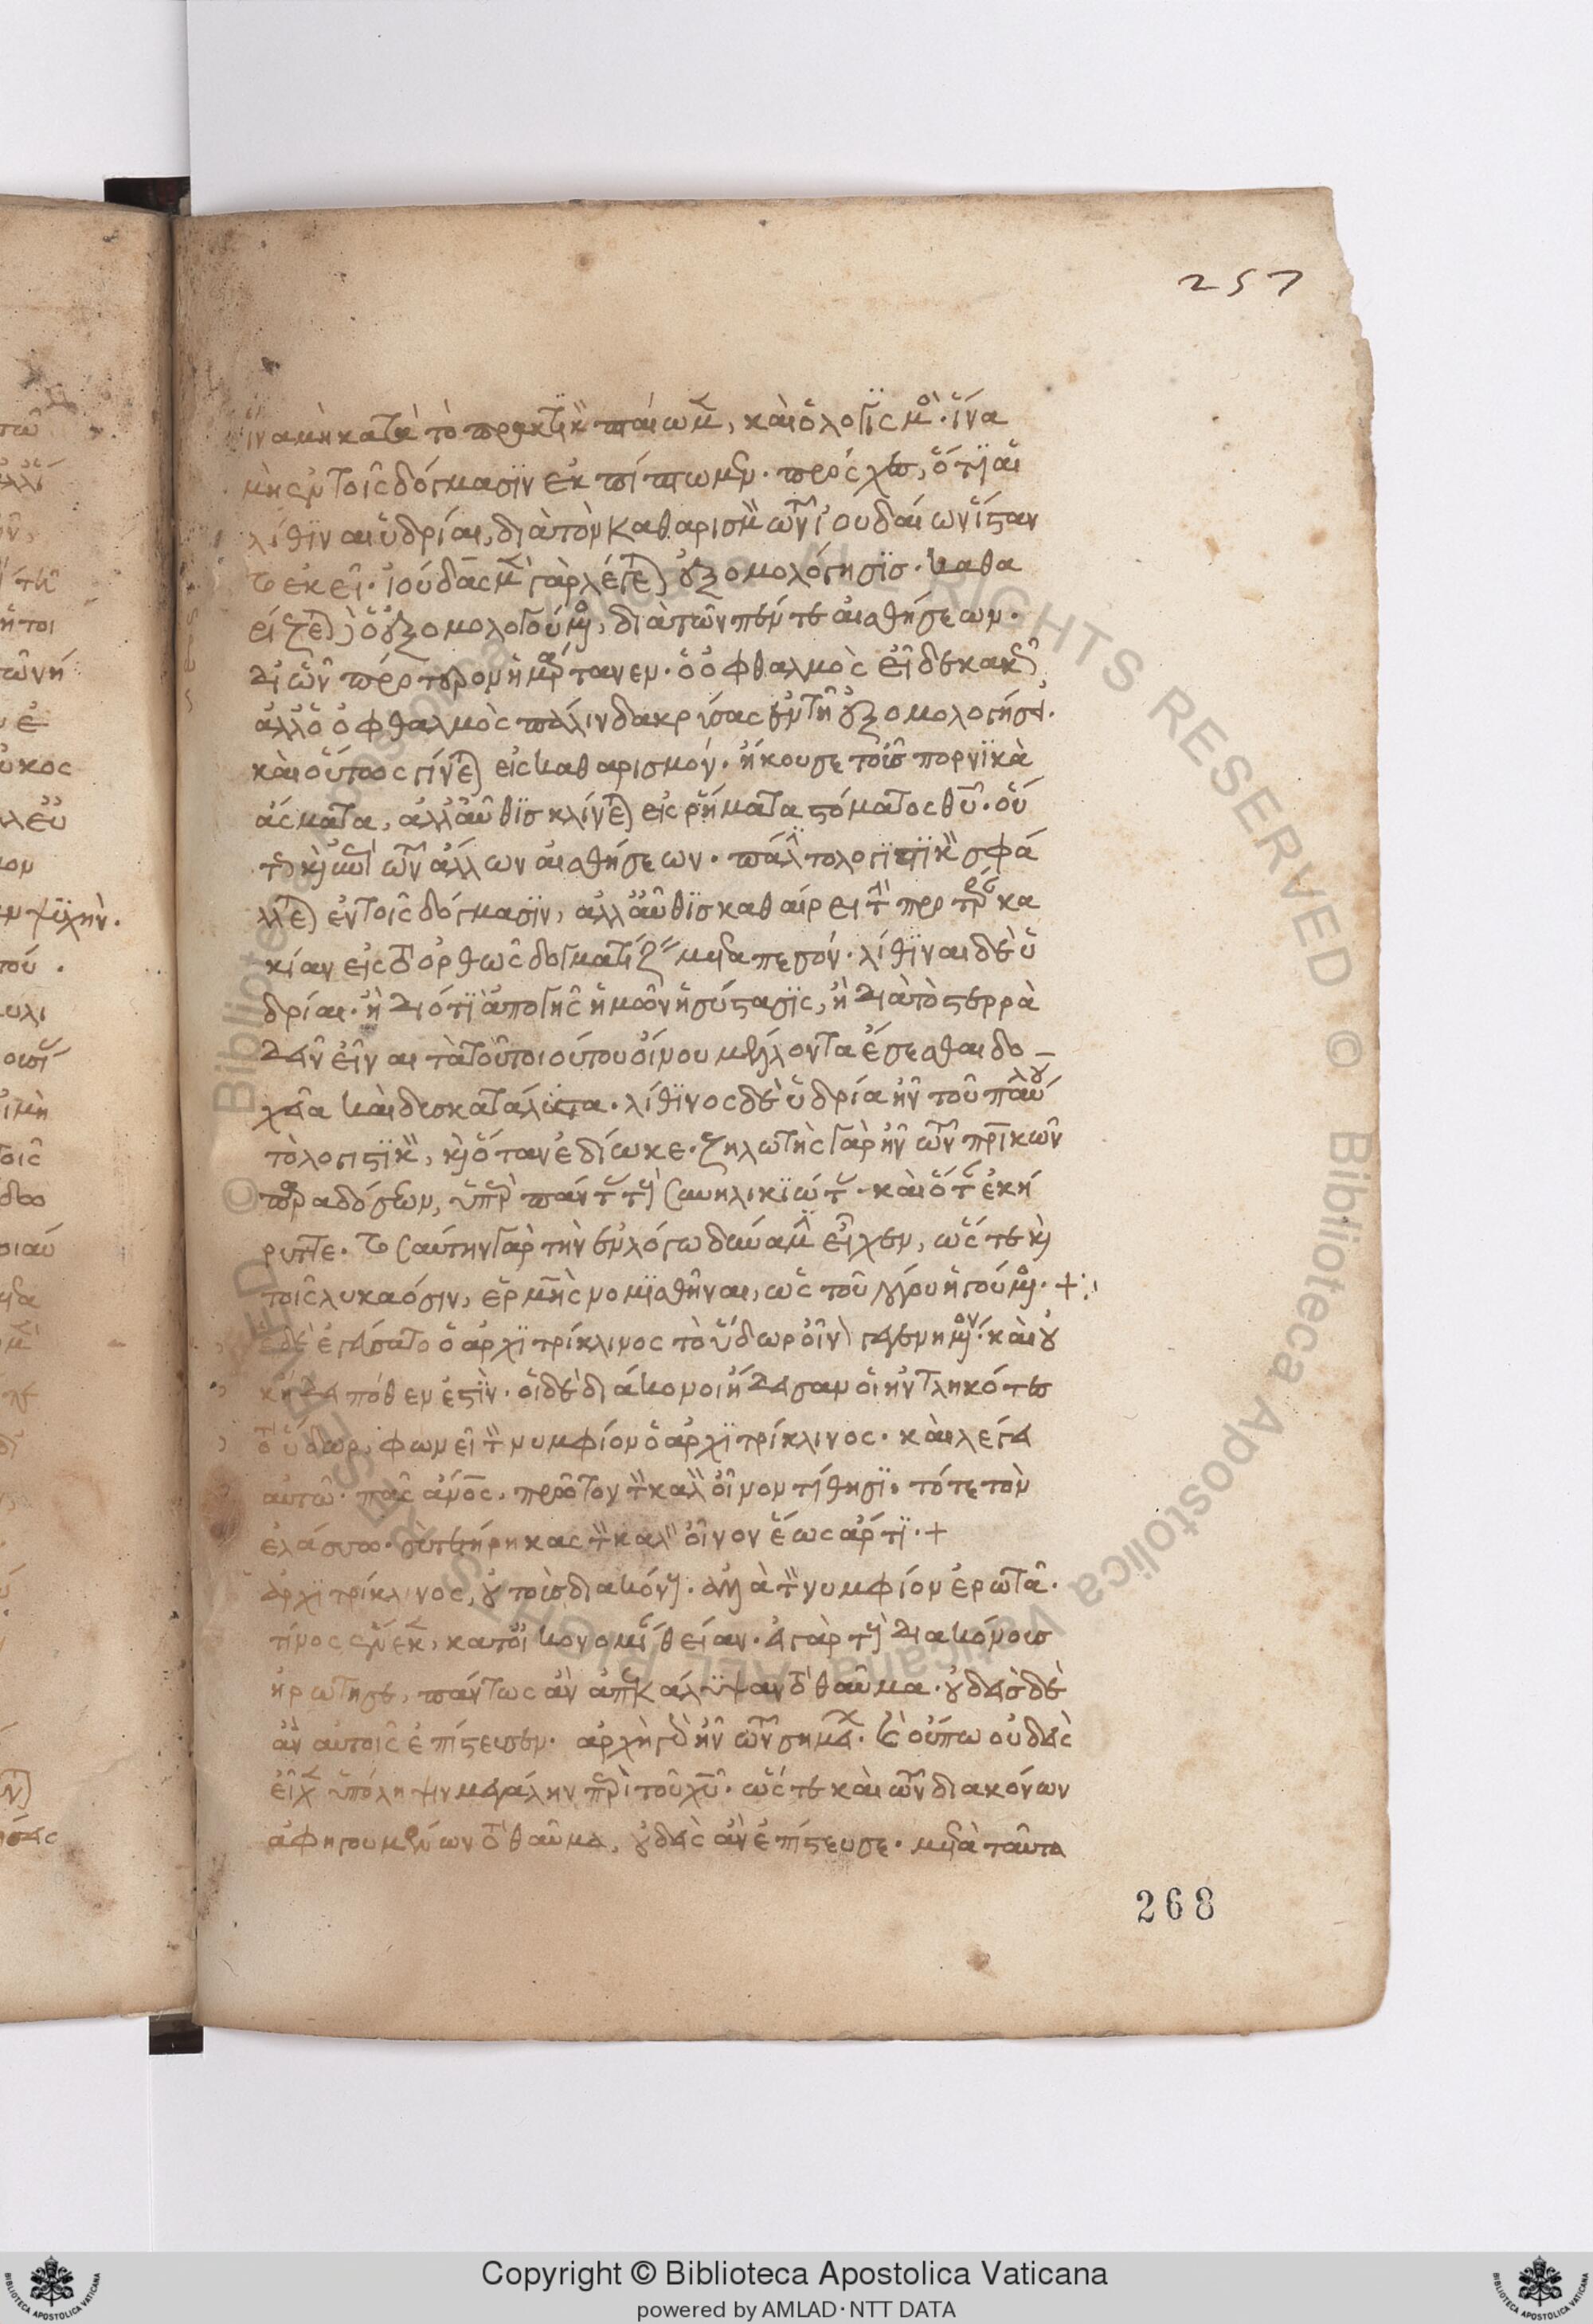 257
ἵνα μὴ κατὰ τὸ πρακτικὸν πταίωμεν, καὶ ὁ λογισμὸς ἵνα
μὴ ἐν τοῖς δόγμασιν ἐκπίπτωμεν. πρόσχες, ὅτι αἱ
λίθιναι ὑδρίαι, διὰ τὸν καθαρισμὸν τῶν ἰουδαίων ἵσταν
το ἐκεῖ. ἰούδας μὲν γὰρ λέγεται ἐξομολόγησις. καθα
ρίζεται ὁ ἐξομολογούμενος, διὰ τῶν πέντε αἰσθήσεων.
δι ὧν πρότερον ἡμάρτανεν. ὁ ὀφθαλμὸς εἶδε κακῶς
ἀλλ ὁ ὀφθαλμὸς πάλιν δακρύσας ἐν τῇ ἐξομολογήσει.
καὶ οὕτως γίνεται εἰς καθαρισμόν. ἤκουσε τὸ οὖς πορνικὰ
ἄσματα, ἀλλ αὖθις κλίνεται εἰς ῥήματα στόματος θυ. οὕ
τω καὶ ἐπὶ τῶν ἄλλων αἰσθήσεων. πάλιν τὸ λογιστικὸν σφά
λλεται ἐν τοῖς δόγμασιν, ἀλλ αὖθις καθαίρει τὴν προτέραν κα
κίαν εἰς τὸ ὀρθῶς δογματίζειν μεταπεσόν. λίθιναι δὲ ὑ
δρίαι. ἢ διότι ἀπὸ γῆς ἡμῶν ἡ σύστασις, ἢ διὰ τὸ στερρὰ
δεῖν εἶναι τὰ τοῦ τοιούτου οἴνου μέλλοντα ἔσεσθαι δο
χεῖα καὶ δυσκατάλυτα. λίθινος δὲ ὑδρία ἦν τοῦ παύλου
τὸ λογιστικὸν, καὶ ὅταν ἐδίωκε. ζηλωτὴς γὰρ ἦν τῶν πρικῶν
παραδόσεων, ὑπὲρ πάντας τοὺς συνηλικιώτας. καὶ ὅτε ἐκή
ρυττε. τοσαύτην γὰρ τὴν ἐν λόγω δύναμιν εἶχεν, ὥστε καὶ
τοῖς λυκαόσιν, ἑρμῆς νομισθῆναι, ὡς τοῦ λόγου ἡγούμενος. +
ὡς δὲ ἐγεύσατο ὁ ἀρχιτρίκλινος τὸ ὕδωρ οἶνον γεγενημένον. καὶ οὐ
κ ᾔδει πόθεν ἐστίν. οἱ δὲ διάκονοι ᾔδεισαν οἱ ἠντληκότες
τὸ ὕδωρ. φωνεῖ τὸν νυμφίον ὁ ἀρχιτρίκλινος. καὶ λέγει
αὐτῶ. πᾶς ἀνος, πρῶτον τὸν καλὸν οἶνον τίθησι. τότε τὸν
ἐλάσσω. σὺ τετήρηκας τὸν καλὸν οἶνον ἕως ἄρτι. +
ἀρχιτρίκλινος, οὐ τοὺς διακόνους. ἀλλὰ τὸν νυμφίον ἐρωτᾶ.
τίνος ἕνεκεν, κατ οἰκονομίαν θείαν. εἰ γὰρ τοὺς διακόνους
ἠρώτησε, πάντως ἂν ἀπεκάλυψαν τὸ θαῦμα. οὐδεὶς δὲ
ἂν αὐτοῖς ἐπίστευσεν. ἀρχὴ γὰρ ἦν τῶν σημείων. καὶ οὔπω οὐδεὶς
εἶχεν ὑπόληψιν μεγάλην περὶ τοῦ χυ. ὥστε καὶ τῶν διακόνων
ἀφηγουμένων τὸ θαῦμα, οὐδεὶς ἂν ἐπίστευσε. μετὰ ταῦτα
268
© Biblioteca Apostolica Vaticana ALL RIGHTS RESERVED
Copyright © Biblioteca Apostolica Vaticana
powered by AMLAD·NTT DATA